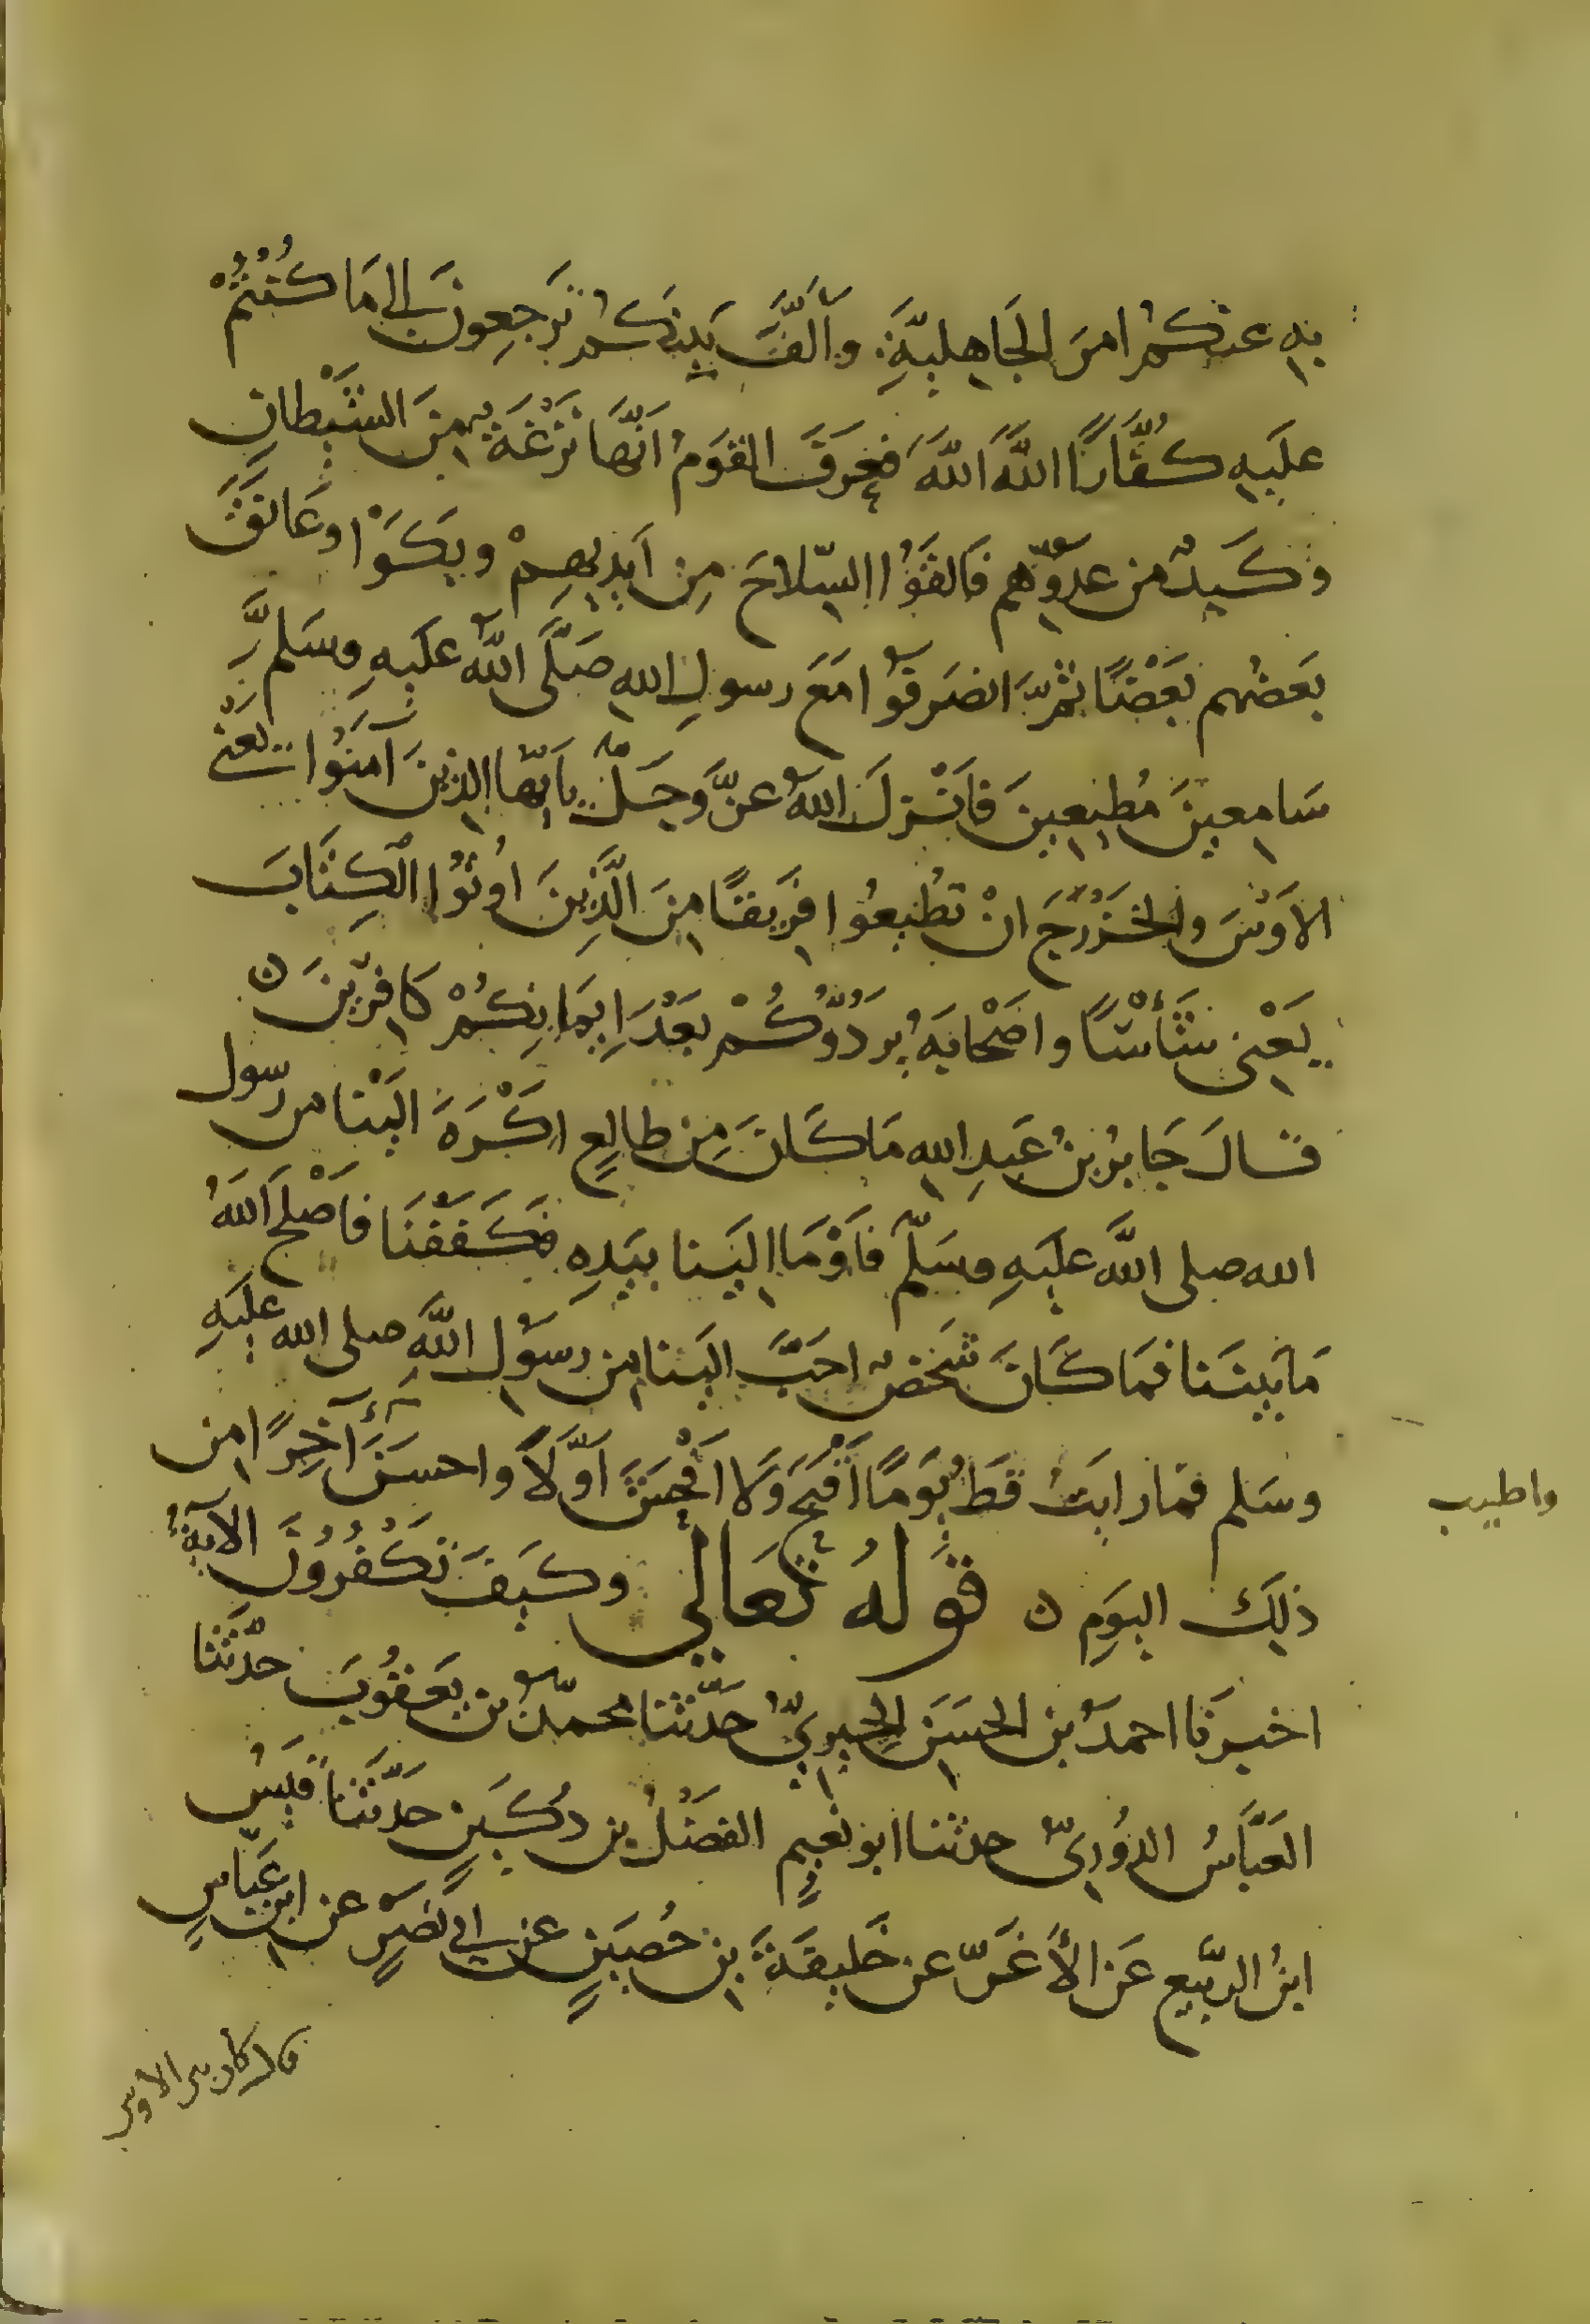 بِهِ عنكمُ امرَ الجَاهِليَّةِ وألَّفَ بَينَكُم تَرجِعونَ إلى مَا كُنتُمْ
عليَهِ كُفَّارًا اللهَ اللهَ فعَرَفَ القَومُ أنَّهَا نَزْغَةٌ مِنَ الشَيْطانِ
وكَيدٌ من عدوّهم فَالقَوُا السّلاحَ مِن أيَدِيهِمْ وبَكَوْا وعَانَقَ
بَعضُهم بَعْضًا ثمّ انصَرَفوُا مَعَ رسولِ اللهِ صَلَّى اللهُ علَيهِ وسَلم
سَامِعينَ مُطِيعِينَ فأنْزلَ اللهُ عزَّ وجَلَّ يا أيّها الذِينَ آمَنُوا يَعْنِي
الاَوْسَ والخَزْرَجَ انْ تُطيعُوا فَرِيقًا مِنَ الَّذِينَ اُوتُوا الْكِتَابَ
يَعْنِي شَأْسًا واصْحَابَهُ يرَدُّوكُمْ بَعْدَ اِيمَانِكُمْ كافِرِينَ ٥
قالَ جَابرُ بنُ عَبدِ اللهِ مَا كَانَ مِن طالِعٍ اكْرَهَ اليَنا من رسول
الله صلى اللهُ عليَهِ وسَلّم فَأوْمَا اليَنا بيَدِهِ فكَفَفْنَا فأصْلحَ اللهُ
مَا بَينَنا فمَا كَانَ شَخصٌ احَبَّ اليَنا مِن رسَوُل اللهِ صلى الله عليَهِ
وسَلم فمَا رايَتُ قَطُّ يَومًا أقْبَحَ وَلا أوْحَشَ أوَّلاً واحسَنَ آخِرًا مِن
واطيب
ذلِكَ اليَومِ ٥ قَولُهُ تَعَالى وكَيفَ تَكْفُرُونَ الآيةُ
اخبرَنا احمدُ بن الحسَنِ الحِيرِيُّ حدَّثنا محمّدُ بن يَعقوُبَ حدَّثَنا
العَبَّاسُ الدُورِيّ حدثنا ابو نعُيمٍ الفَضْلُ بن دُكَينٍ حدَّثَنا قَيسُ
ابنُ الربَّيعِ عَن الأَغَرّ عن خَليفَةَ بن حُصَينٍ عن أبى نَصرٍ عن ابنِ عبَّاسٍ
قال كان بين الاوس